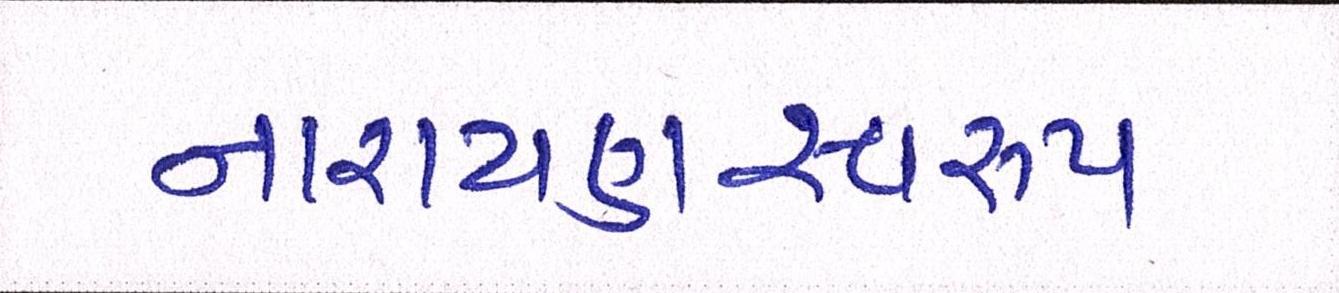 નારાયણસ્વરુપ